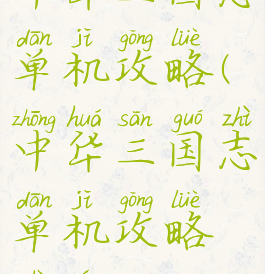 dān jī gōng lüè
单机攻略(
zhōng huá sān guó zhì
中华三国志
dān jī gōng lüè
单机攻略